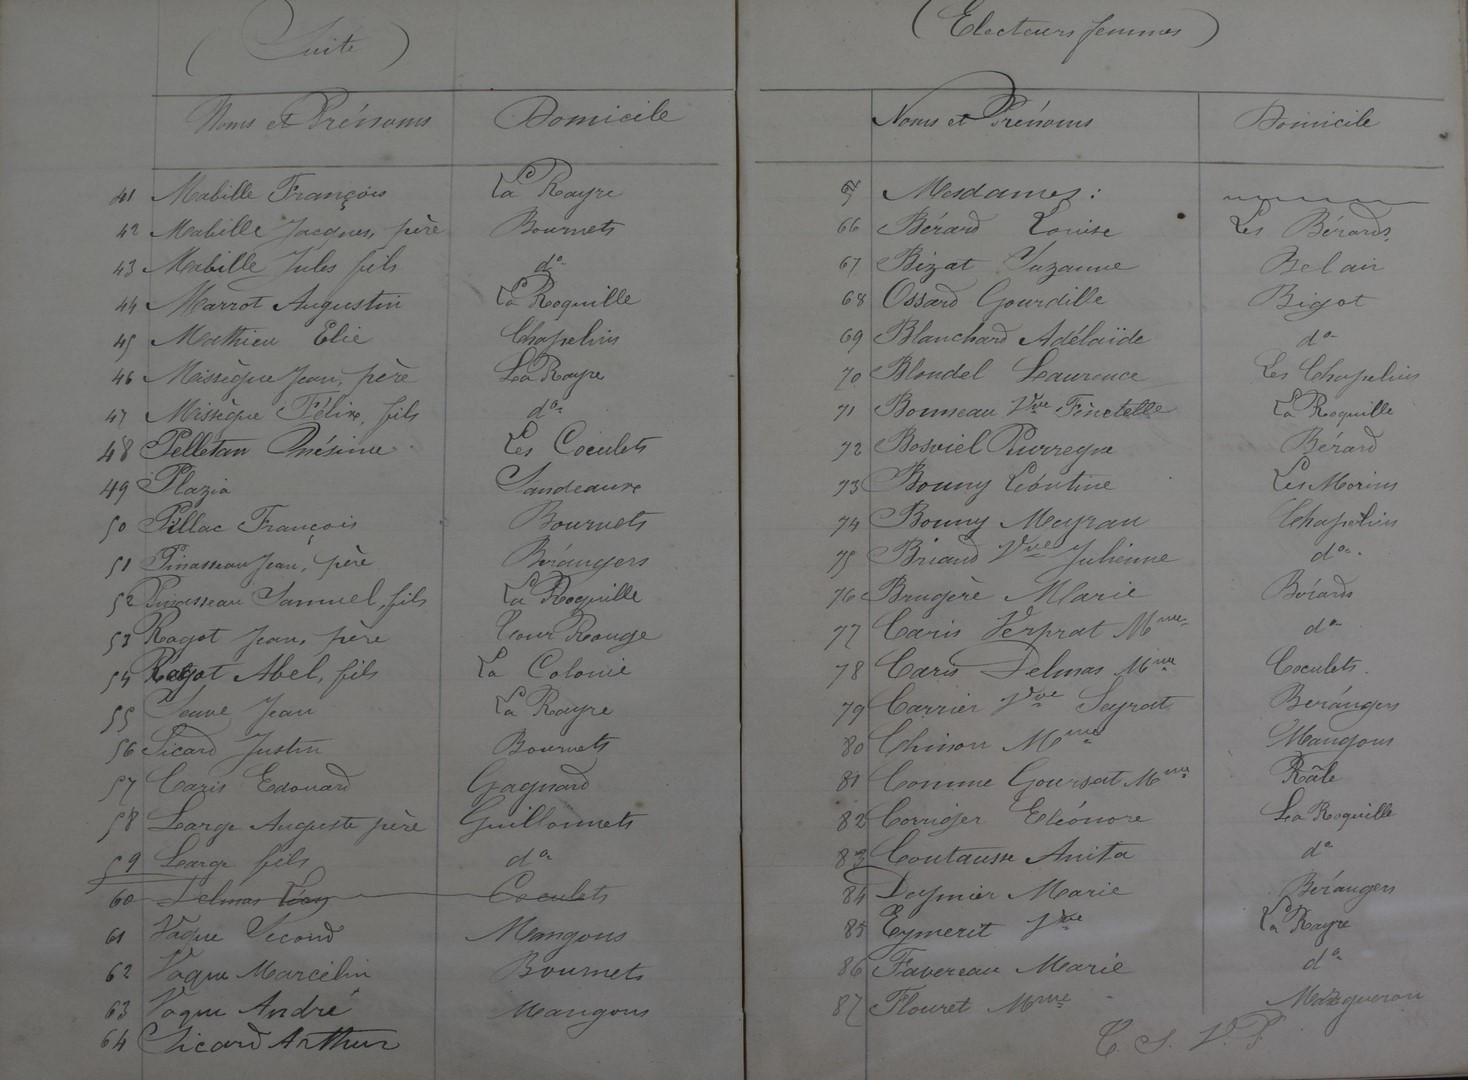 (Suite)
Noms et Prénoms Domicile
41 Mabille François La Rayre
42 Mabille Jacques, père Bournets
43 Mabille Jules fils do
44 Marrot Augustin La Roquille
45 Mathieu Elie Chapelins
46 Missèque Jean, père La Rayre
47 Missèque Félix, fils do
48 Pelletan Onésime Les Coculets
49 Plazia Sandeaux
50 Pillac François Bournets
51 Pinasseau Jean, père Bérangers
52 Pinasseau Samuel, fils La Roquille
53 Ragot Jean, père Tour Rouge
54 Ragot Abel, fils La Colonie
55 Seuve Jean La Rayre
56 Sicard Justin Bournets
57 Caris Edouard Gagnard
58 Large Auguste père Guillonnets
59 Large fils do
60 Delmas Coculets
61 Vaque Second Mangons
62 Vaque Marcélin Bournets
63 Vaque André Mangons
64 Sicard Arthur
(Electeurs femmes)
Noms et Prénoms Domicile
Mesdames :
66 Bérard Louise Les Bérards
67 Bizat Suzanne Bel air
68 Ossard Gourdille Bigot
69 Blanchard Adélaïde do
70 Blondel Laurence Les Chapelins
71 Bonneau Vve Finetelle La Roquille
72 Bosviel Bérard
73 Bouny Léontine Les Morins
74 Bouny Meyran Chapelins
75 Briand Vve Julienne do
76 Brugère Marie Bérards
77 Caris Verprat Mme do
78 Caris Delmas Mme Coculets
79 Carrier Vve Seyrat Bérangers
80 Chinon Mme Mangons
81 Comme Goursat Mme Râle
82 Corriger Eléonore La Roquille
83 Coutausse Anita do
84 Deymier Marie Bérangers
85 Eymerit Vve La Rayre
86 Favereau Marie do
87 Flouret Mme Mazqueron
T. S. V. P.